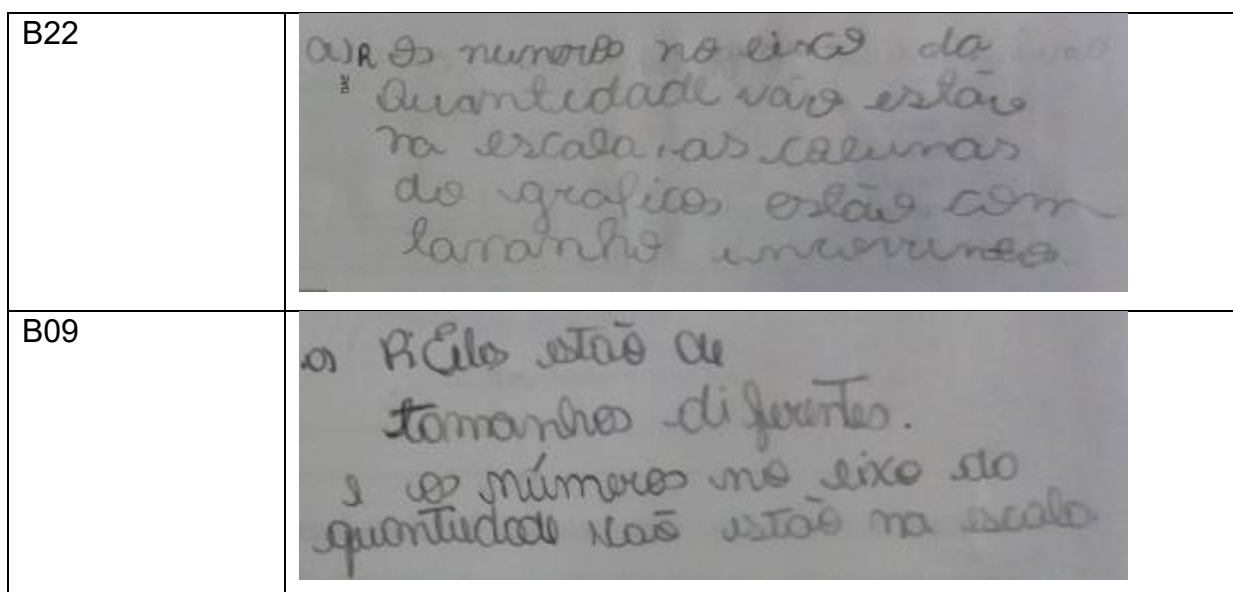 B22
a) R Os numeros no eixco da
Quantidade vão estão
na escala, as colunas
do graficos estão com
tamanho
B09
a) R: Eles estão de
tamanhos diferentes.
e os números no eixo do
quantidade não estão na escala